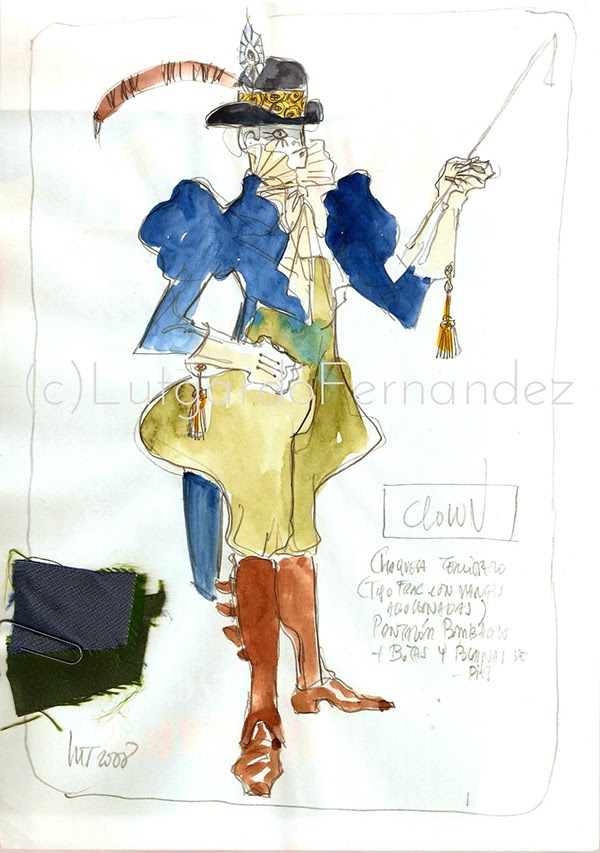 (c)LutgardoFernandez
CLOWN
CHAQUETA TERCIOPELO
(TIPO FRAC CON MANGAS
ABOLLONADAS)
PANTALÓN BOMBACHO
+ BOTAS Y POLAINAS DE
PIEL
LUT 2008